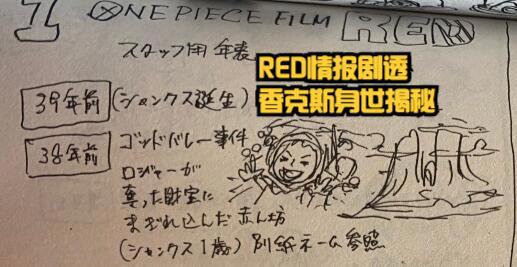 1 ONE PIECE FILM RED
スタッフ用 年表
RED情报剧透
香克斯身世揭秘
39年前 (シャンクス誕生)
38年前 ゴッドバレー事件
ロジャーが
奪った財宝に
まぎれ込んだ赤ん坊
(シャンクス1歳) 別紙ネーム参照